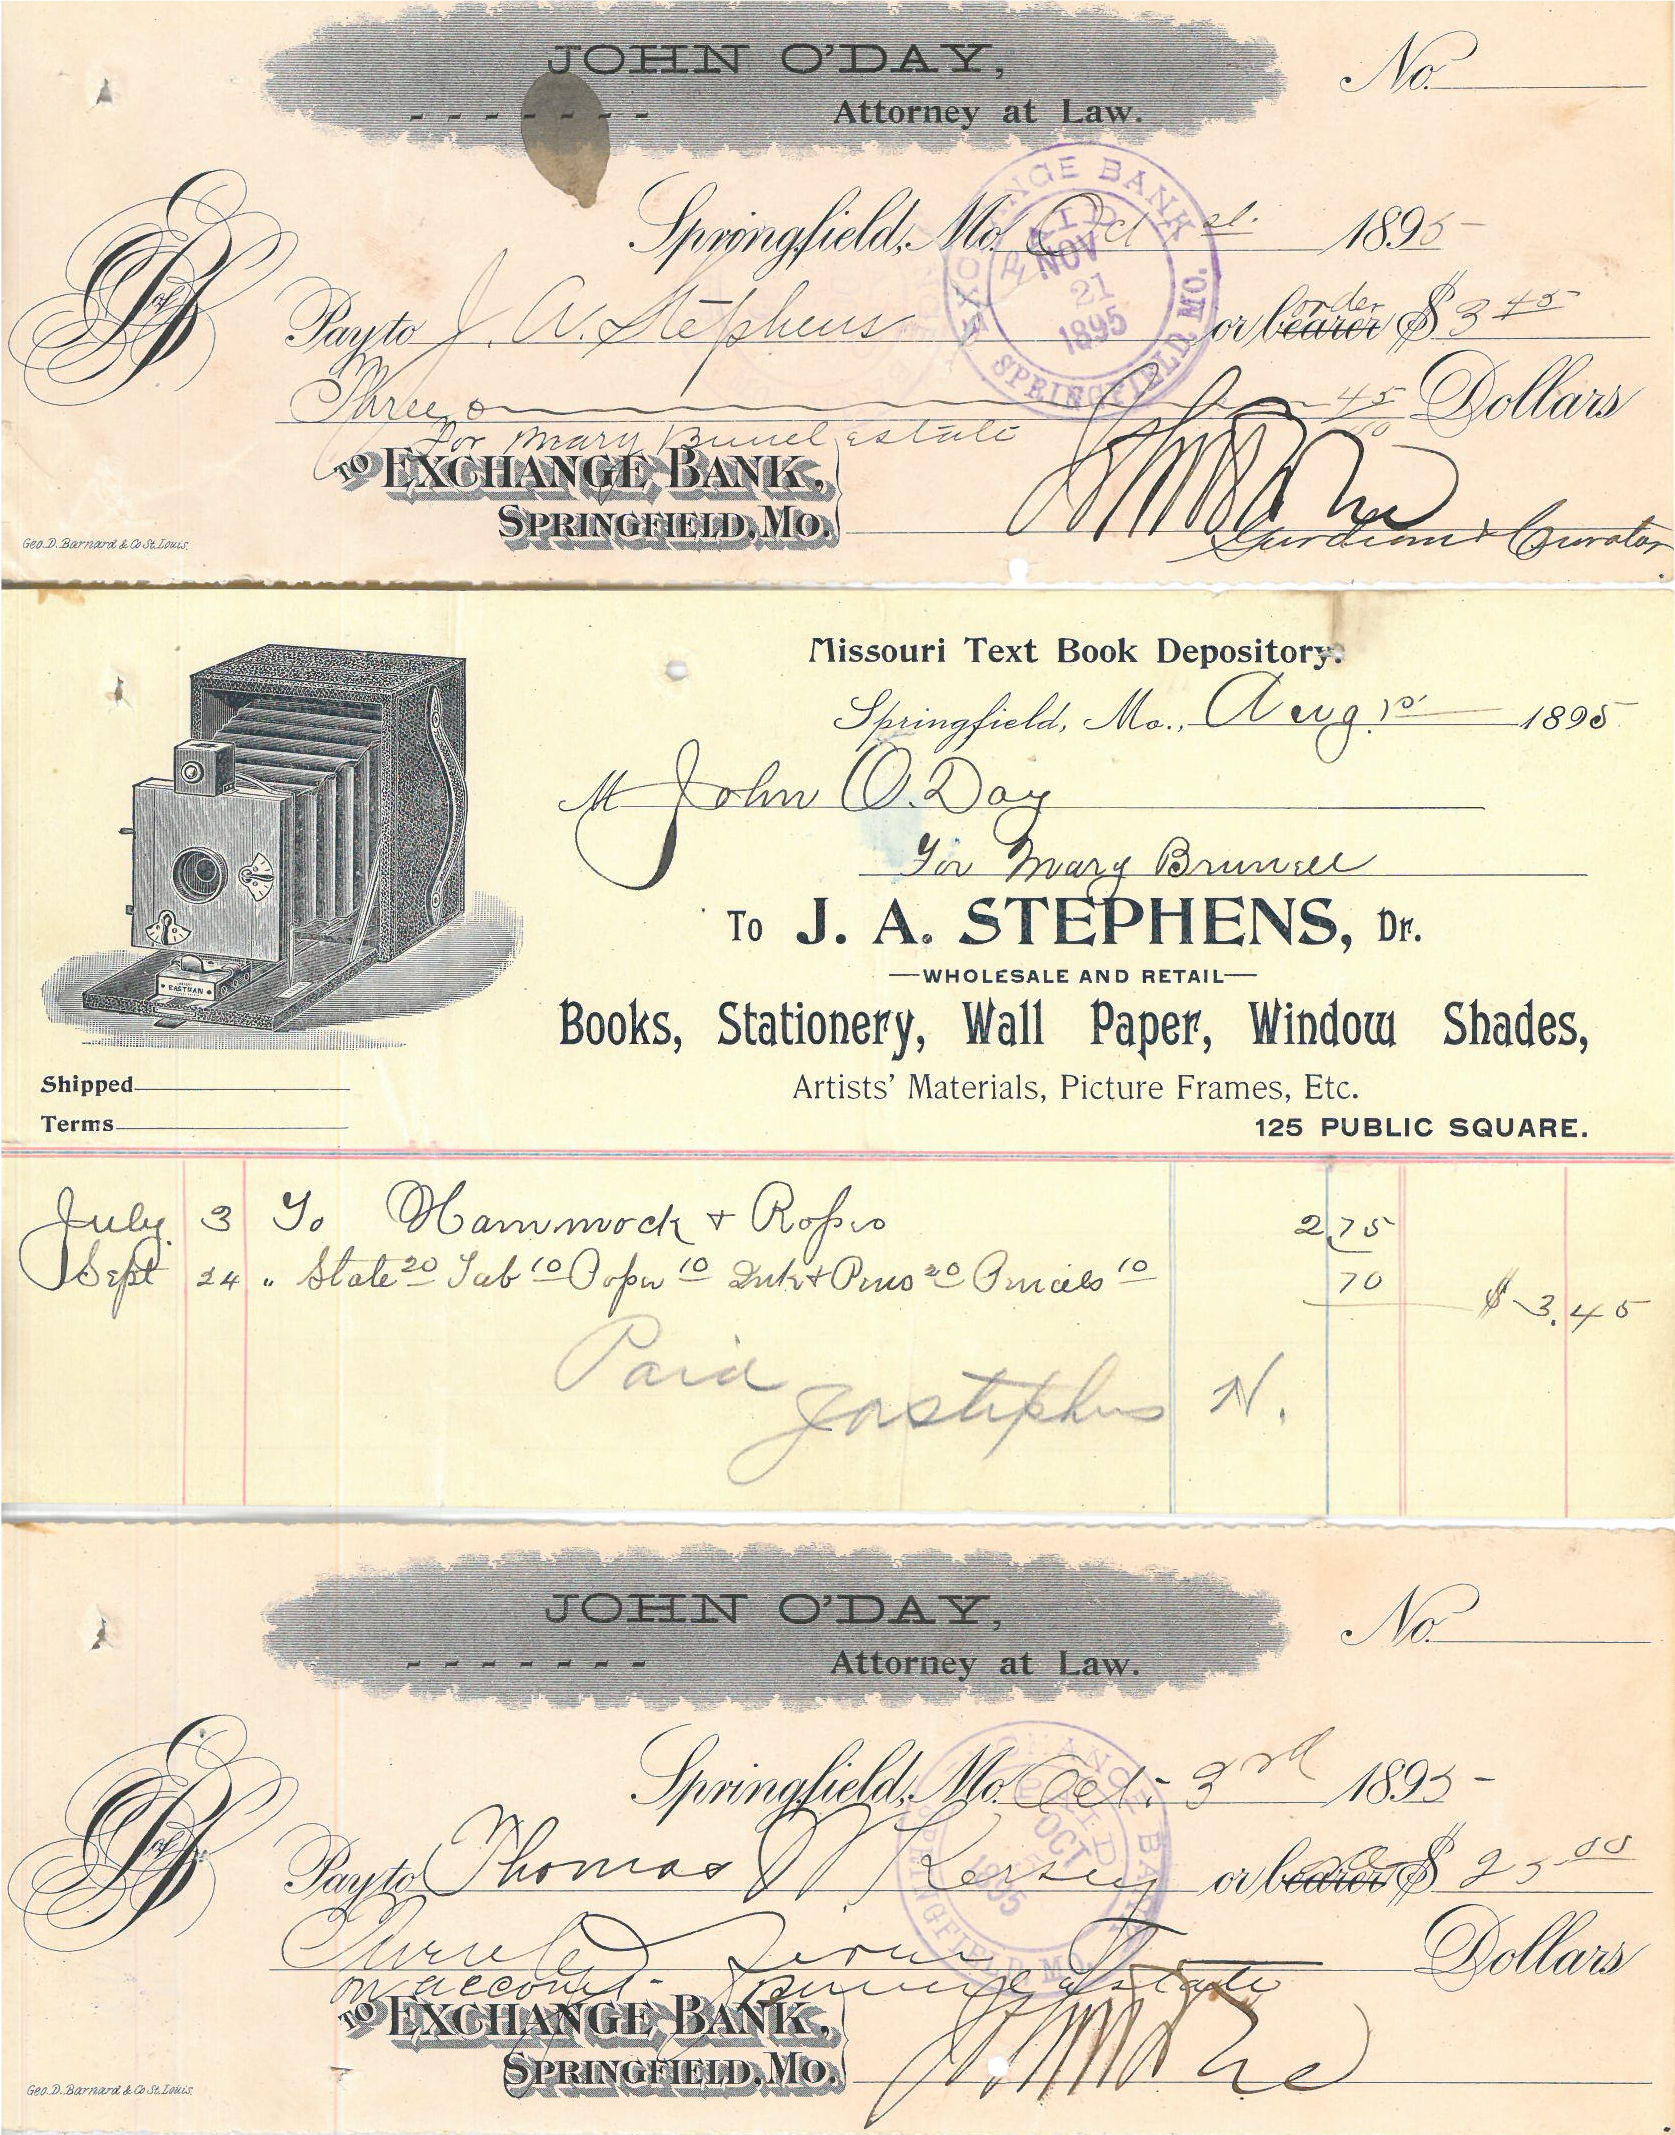 JOHN O'DAY,
Attorney at Law.
No.
Springfield, Mo. Oct 1895
EXCHANGE BANK
PAID
NOV
21
1895
SPRINGFIELD, MO.
Pay to J. A. Stephens or bearer order $ 3 45
Three 45 Dollars
For Mary estate
TO EXCHANGE BANK,
SPRINGFIELD, MO.
Gurdian & Curator
Geo. D. Barnard & Co St. Louis.
Missouri Text Book Depository.
Springfield, Mo., Aug. 1895
M John O. Day
For Mary
To J. A. STEPHENS, Dr.
—WHOLESALE AND RETAIL—
EASTMAN
Books, Stationery, Wall Paper, Window Shades,
Shipped
Artists' Materials, Picture Frames, Etc.
Terms
125 PUBLIC SQUARE.
July 3 To Hammock & Ropes 2.75
Sept 24 " Slate 20 Tab 10 Paper 10 Ink & Pens 20 Pencils 10 70 $ 3.45
Paid
JAStephens
N.
JOHN O'DAY,
Attorney at Law.
No.
Springfield, Mo. Oct. 3rd 1895
EXCHANGE BANK
PAID
OCT
1895
SPRINGFIELD MO.
Pay to Thomas Kersey or bearer $ 25 00
Dollars
on account estate
TO EXCHANGE BANK,
SPRINGFIELD, MO.
Geo. D. Barnard & Co St. Louis.